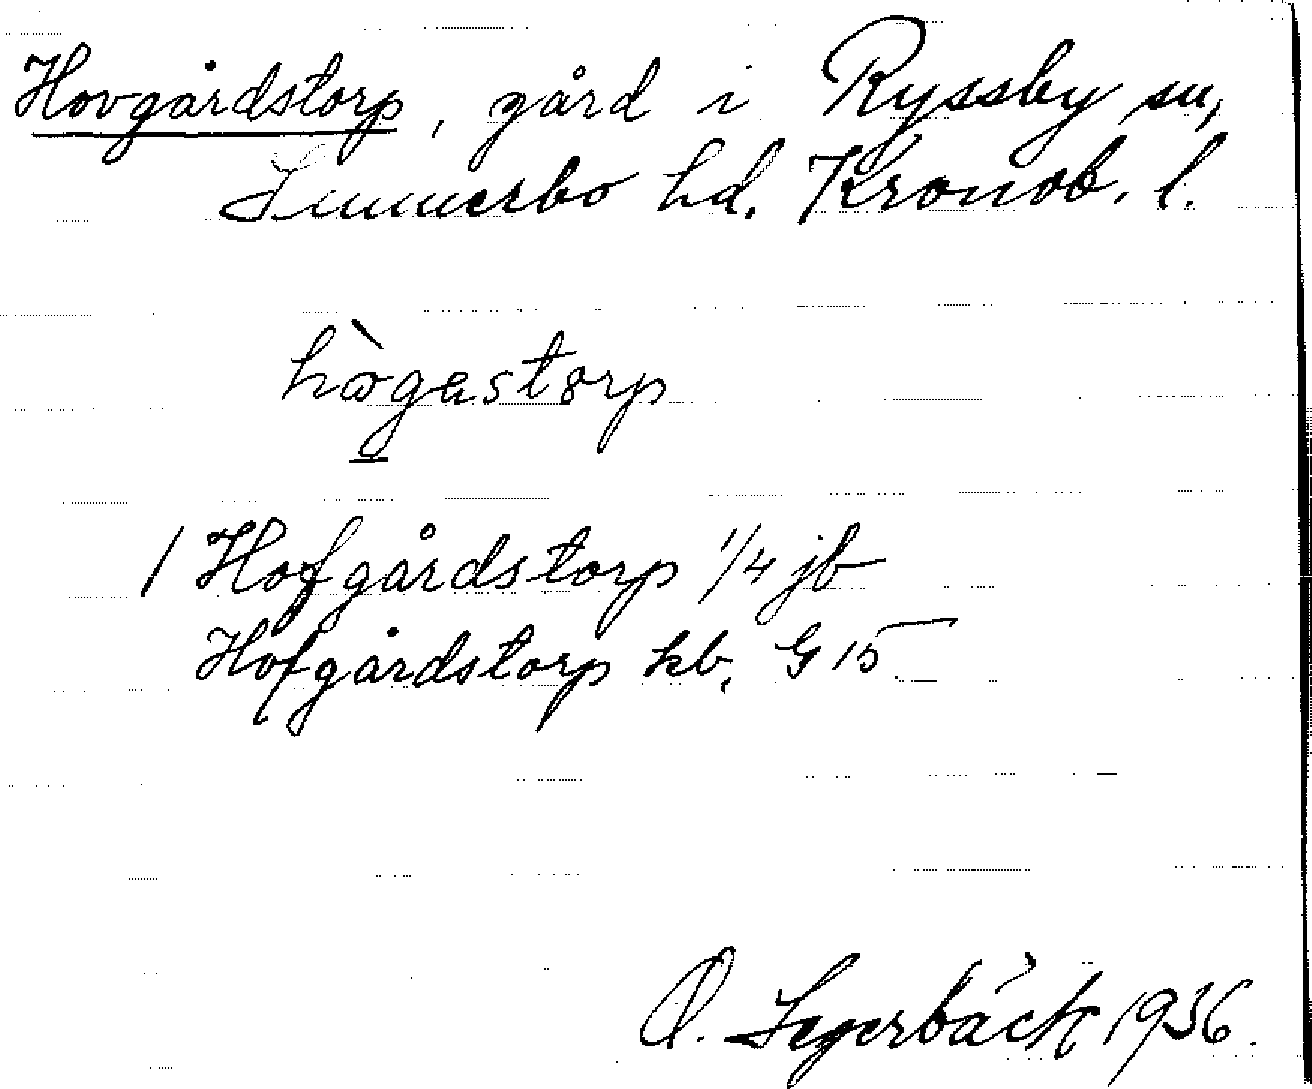 Hovgårdstorp, gård i Ryssby sn,
Sunnerbo hd. Kronob. l.
hògastorp
1 Hofgårdstorp 1/4 jb
Hofgårdstorp kb. G 15
O. Segerbäck 1936.